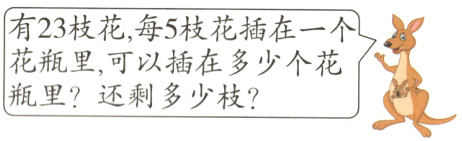 有23枝花,每5枝花插在一个
花瓶里,可以插在多少个花
瓶里？还剩多少枝？